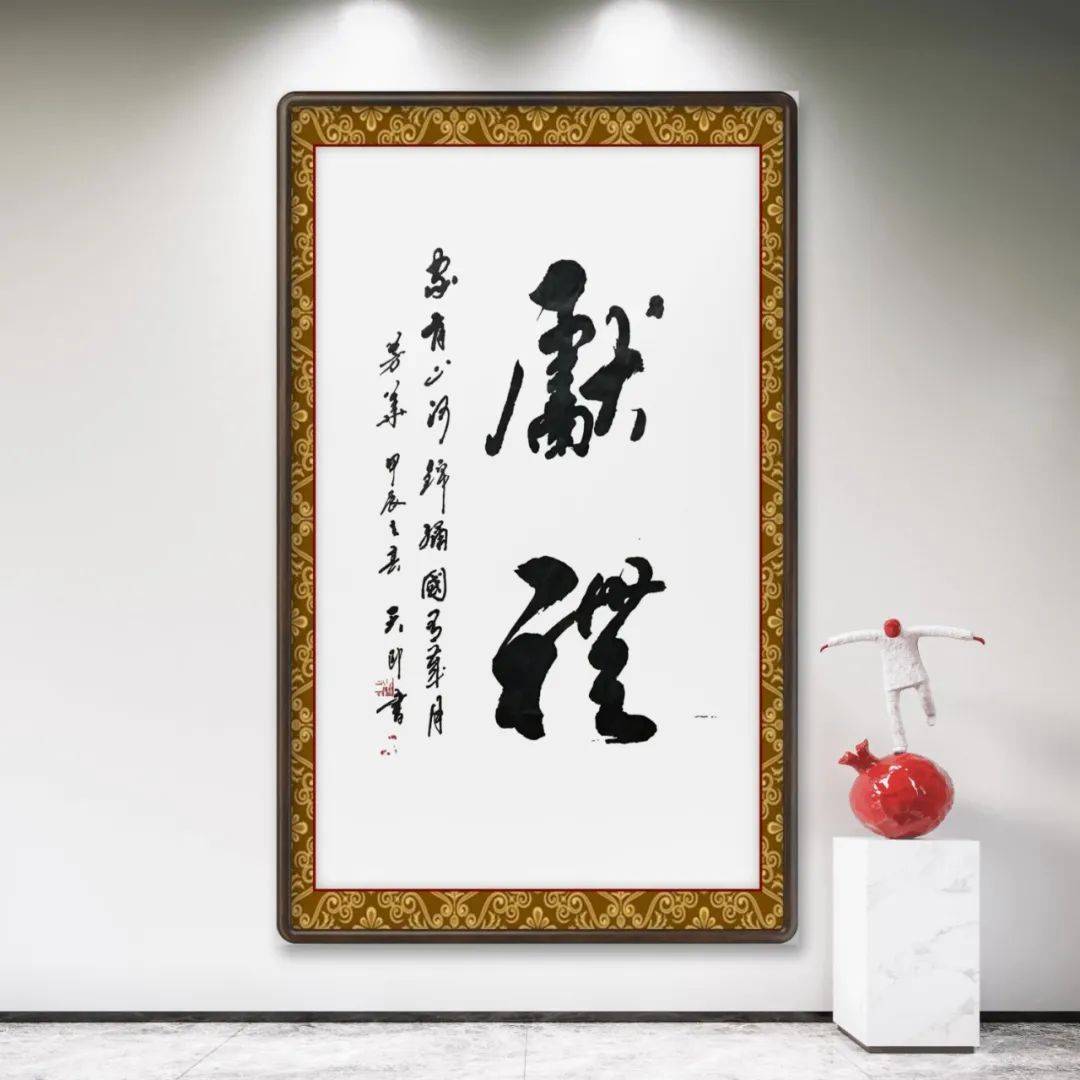 獻禮
家有山河錦繡國有歲月
芳華 甲辰之春 天印書